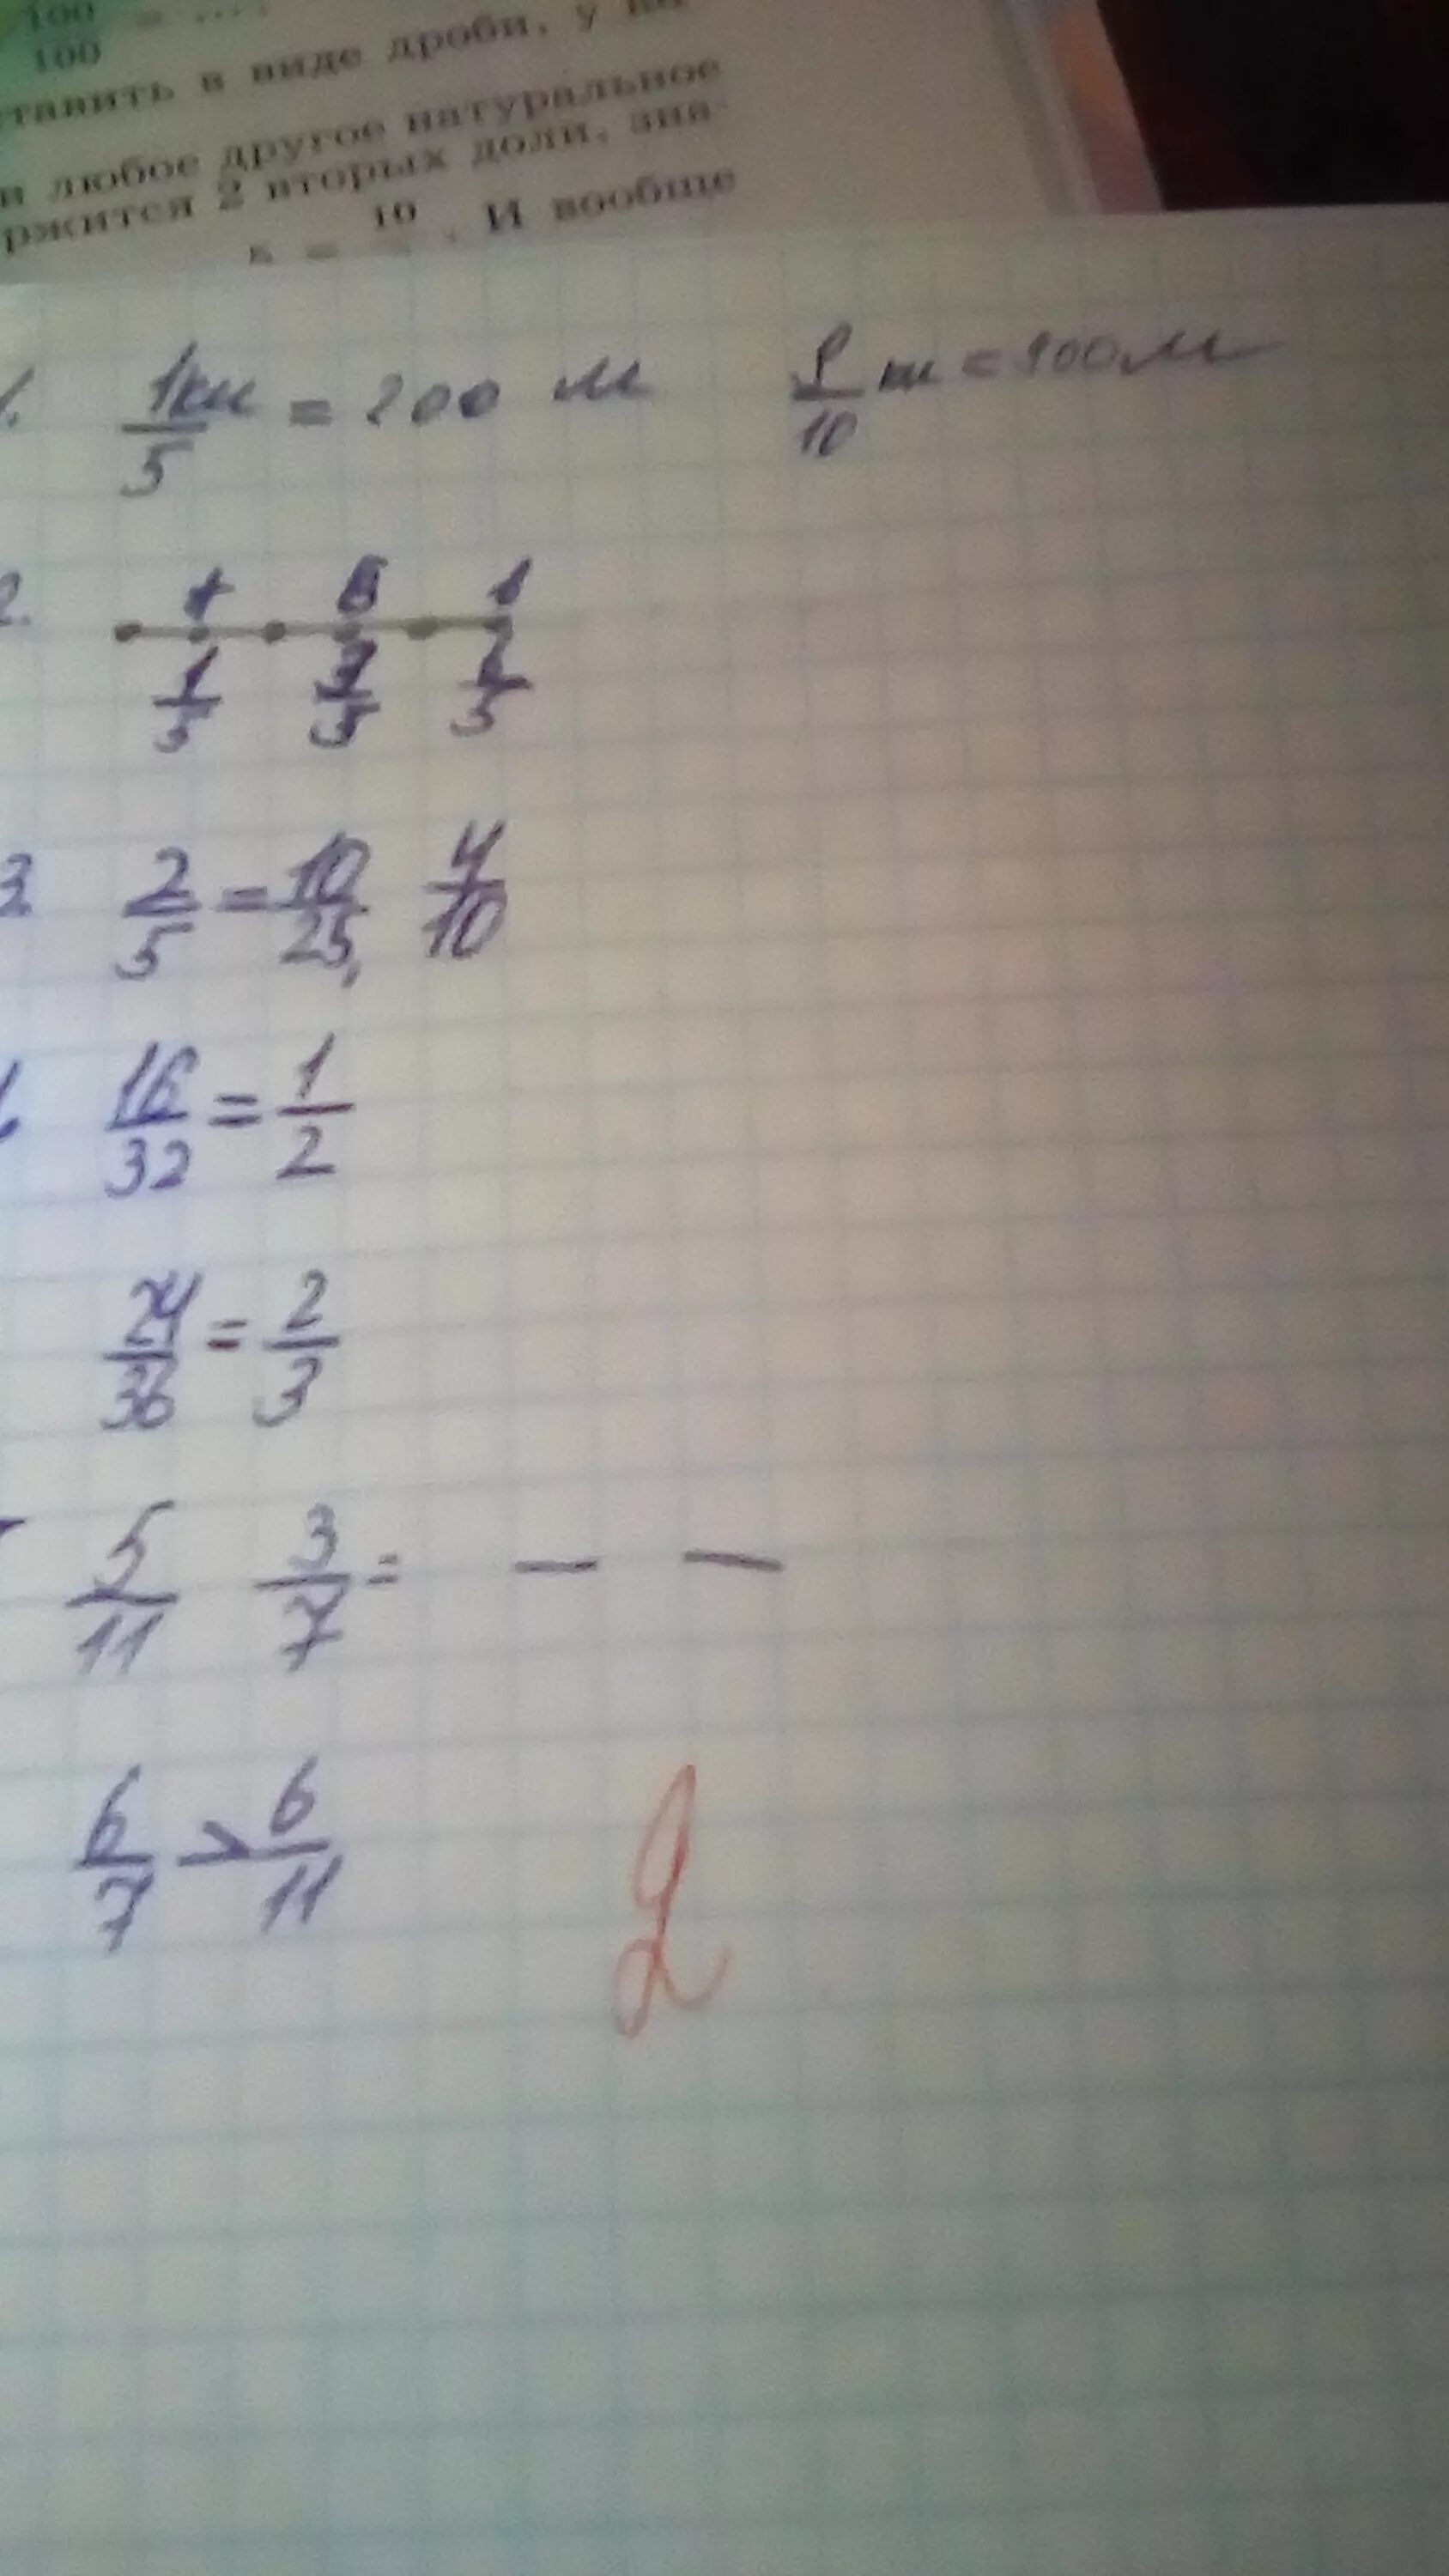 100 = ....
100
тавить в виде дроби, у
и любое другое натуральное
ржится 2 вторых доли, зна-
5 = 10 . И вообще
1. 1км/5 = 200 м 9/10 км = 900 м
2.
1/5
3. 2/5 = 10/25, 4/10
16/32 = 1/2
24/36 = 2/3
5/11 3/7 = — —
6/7 > 6/11
2